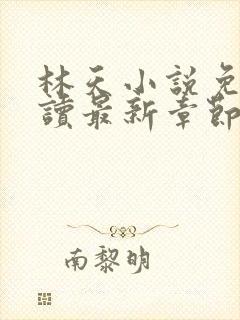 林天小說免
讀最新章節
南黎明